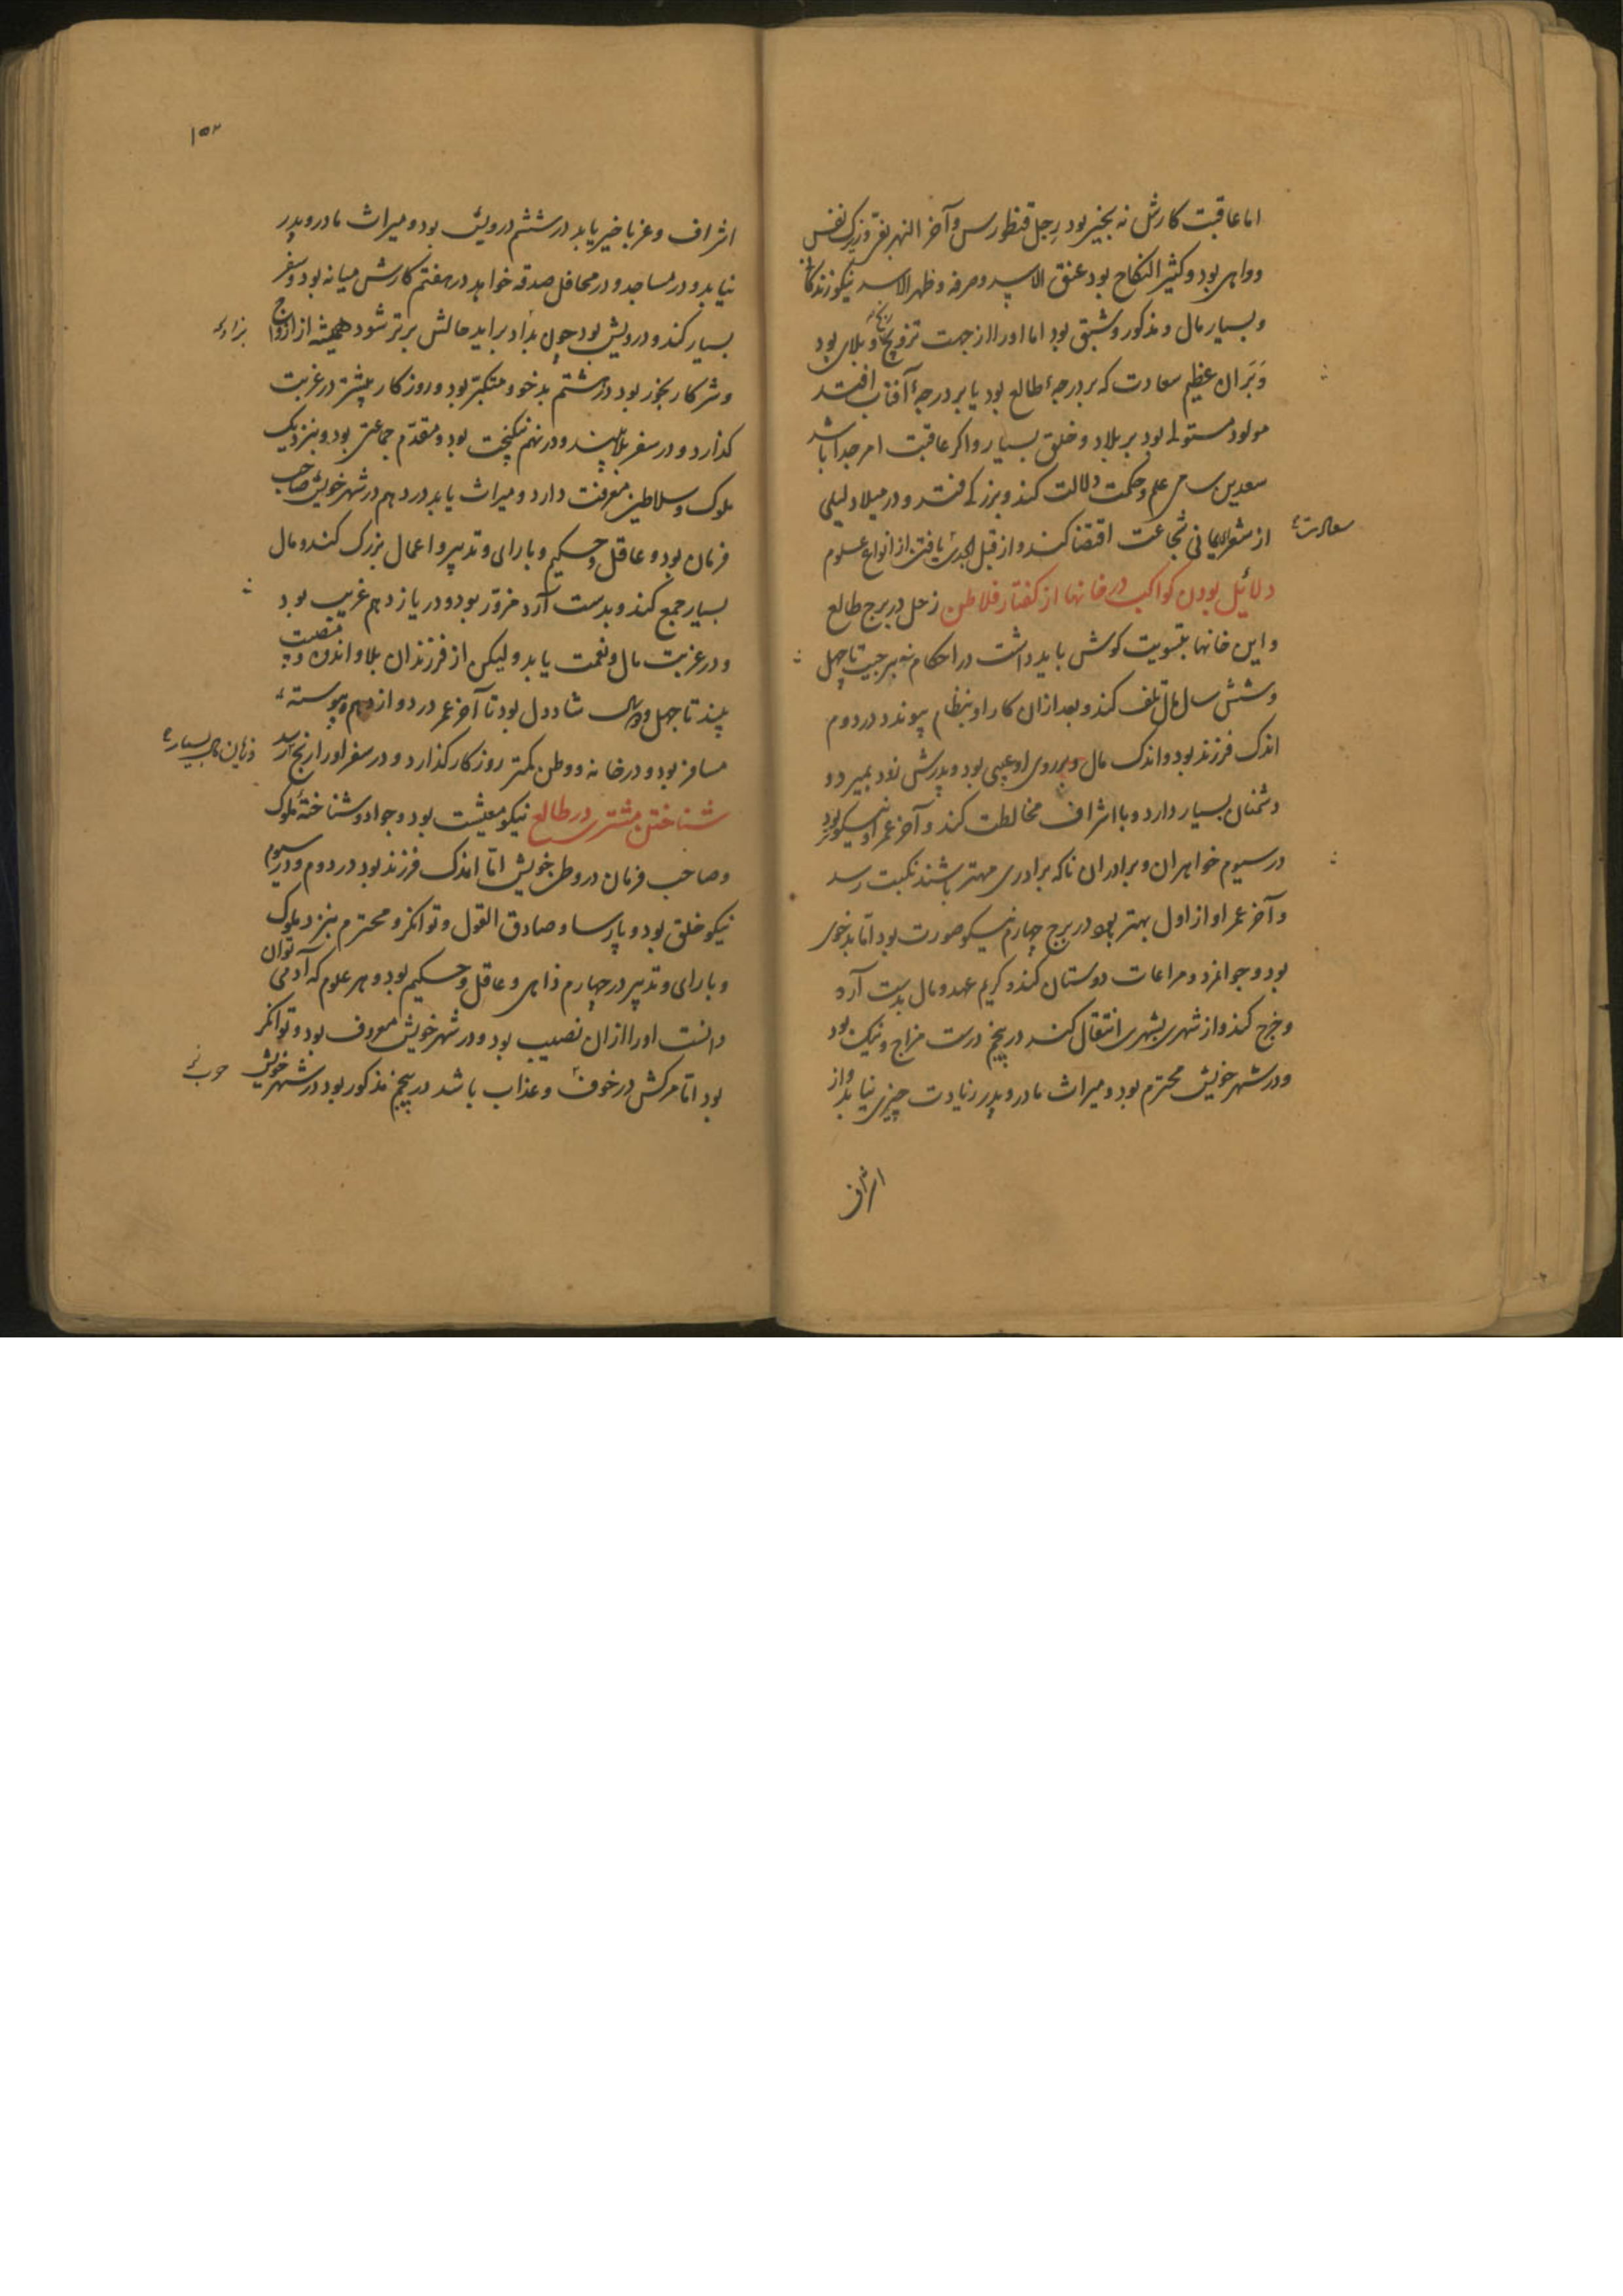 اما عاقبت کارش نه بخیر بود رجل قنطورس و آخر النهر بفر و زیرک نفس
و واهی بود و کثیر النکاح بود عنق الاسد و صرفه و ظهر الاسد نیکو زندکانی
و بسیار مال و مذکور و شبق بود اما او را از جهت تزویج رنج و بلای بود
و بران عظیم سعادت که بر درجهٔ طالع بود یا بر درجهٔ آفتاب افتد
مولود مستولی بود بر بلاد و خلق بسیار و اگر عاقبت امر جدا باشد
سعدین علم و حکمت دلالت کند و بزرک و در میلاد لیلی
از شعرای یمانی شجاعت اقتضا کند و از قبل یافتن از انواع علوم
سعادت
دلائل بودن کواکب در خانها از کفتار فلاطن زحل در برج طالع
و این خانها بتسویت کوش باید داشت در احکام تا چهل
و شش سال مال تلف کند و بعد از ان کار او بنظام پیوندد در دوم
اندک فرزند بود و اندک مال و بر روی او عیبی بود و پدرش زود بمیرد و
دشمنان بسیار دارد و با اشراف مخالطت کند و آخر عمر او نیکو بود
در سیوم خواهران و برادران نا که برادری مهتر باشند نکبت رسد
و آخر عمر او از اول بهتر بود در برج چهارم نیکو صورت بود اما بدخوی
بود و جوانمرد و مراعات دوستان کند و کریم عهد و مال بدست آرد
و خرج کند و از شهری بشهری انتقال کند در پنجم درست مزاج و نیک بود
و در شهر خویش محترم بود و میراث مادر و پدر زیادت چیزی نیابد و از
اشراف
۱۵۳
اشراف و غربا خیر یابد در ششم درویش بود و میراث مادر و پدر
نیابد و در مساجد و در محافل صدقه خواهد در هفتم کارش میانه بود و سفر
بسیار کند و درویش بود چون بزاد براید حالش برتر شود همیشه از ازواج
و شرکا رنجور بود در هشتم بدخو و متکبر بود و روزکار بیشتر در غربت
کذارد و در سفر بلا بیند و در نهم نیکبخت بود و مقدم جماعتی بود و بنزدیک
ملوک و سلاطین معرفت دارد و میراث یابد در دهم در شهر خویش صاحب
فرمان بود و عاقل و حکیم و با رای و تدبیر و اعمال بزرک کند و مال
بسیار جمع کند و بدست آرد مزور بود و در یازدهم غریب بود
و در غربت مال و نعمت یابد و لیکن از فرزندان بلا و اندوه و مصیبت
بیند تا چهل و سال شاد دل بود تا آخر عمر در دوازدهم پیوسته
مسافر بود و در خانه و وطن کمتر روزکار کذارد و در سفر او را رنج رسد
و زیان بسیار
شناختن مشتری در طالع نیکو معیشت بود و جواد و شناختهٔ ملوک
و صاحب فرمان در وطن خویش اما اندک فرزند بود در دوم و در سیوم
نیکو خلق بود و پارسا و صادق القول و توانکر و محترم بنزد ملوک
و با رای و تدبیر در چهارم ذاهی و عاقل و حکیم بود و هر علوم که آدمی توان
دانست او را از ان نصیب بود و در شهر خویش معروف بود و توانکر
بود اما مرکش در خوف و عذاب باشد در پنجم مذکور بود در شهر خویش